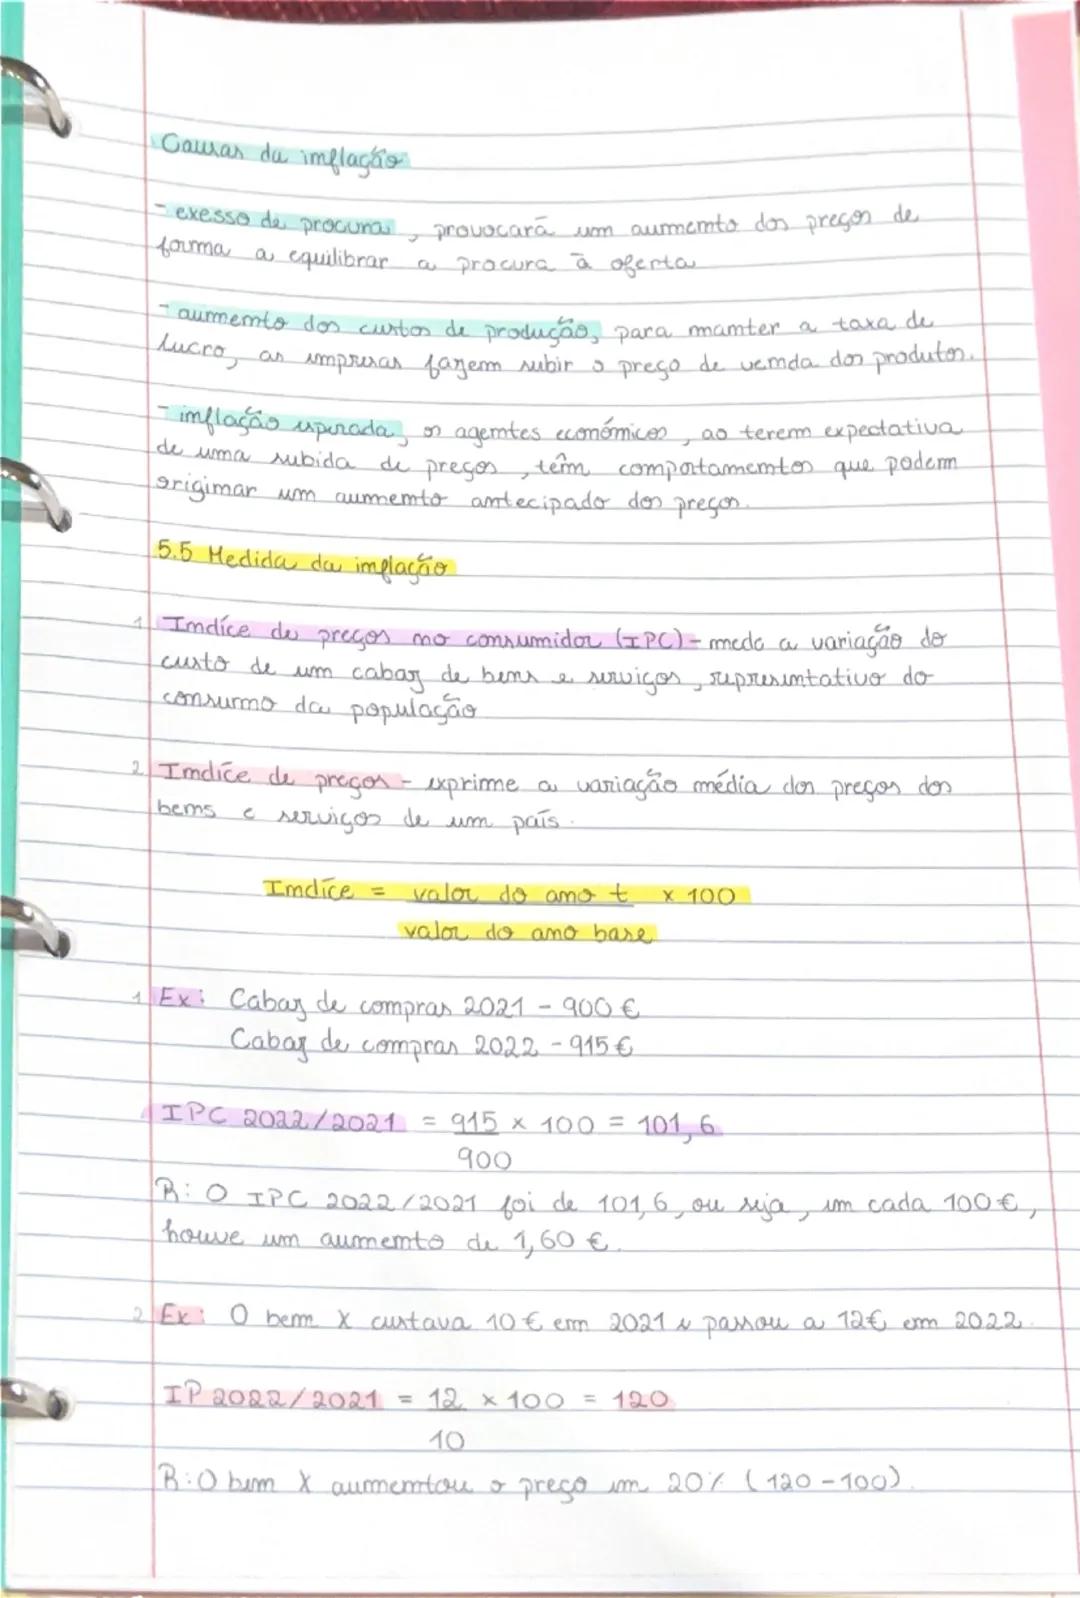 Causas da inflação
- exesso de procura, provocará um aumento dos preços de
forma a equilibrar a procura à oferta
- aumento dos custos de produção, para manter a taxa de
lucro, as empresas fazem subir o preço de venda dos produtos.
- inflação esperada, os agentes económicos, ao terem expectativa
de uma subida de preços, têm comportamentos que podem
originar um aumento antecipado dos preços.
5.5 Medida da inflação
1 Indíce de preços no consumidor (IPC) - mede a variação do
custo de um cabaz de bens e serviços, representativo do
consumo da população
2 Indíce de preços - exprime a variação média dos preços dos
bens e serviços de um país.
Indíce = valor do ano t x 100
valor do ano base
1 Ex: Cabaz de compras 2021 - 900 €
Cabaz de compras 2022 - 915 €
IPC 2022/2021 = 915 x 100 = 101,6
900
R: O IPC 2022/2021 foi de 101,6, ou seja, em cada 100 €,
houve um aumento de 1,60 €.
2 Ex: O bem X custava 10 € em 2021 e passou a 12€ em 2022.
IP 2022/2021 = 12 x 100 = 120
10
R: O bem X aumentou o preço em 20% (120-100).